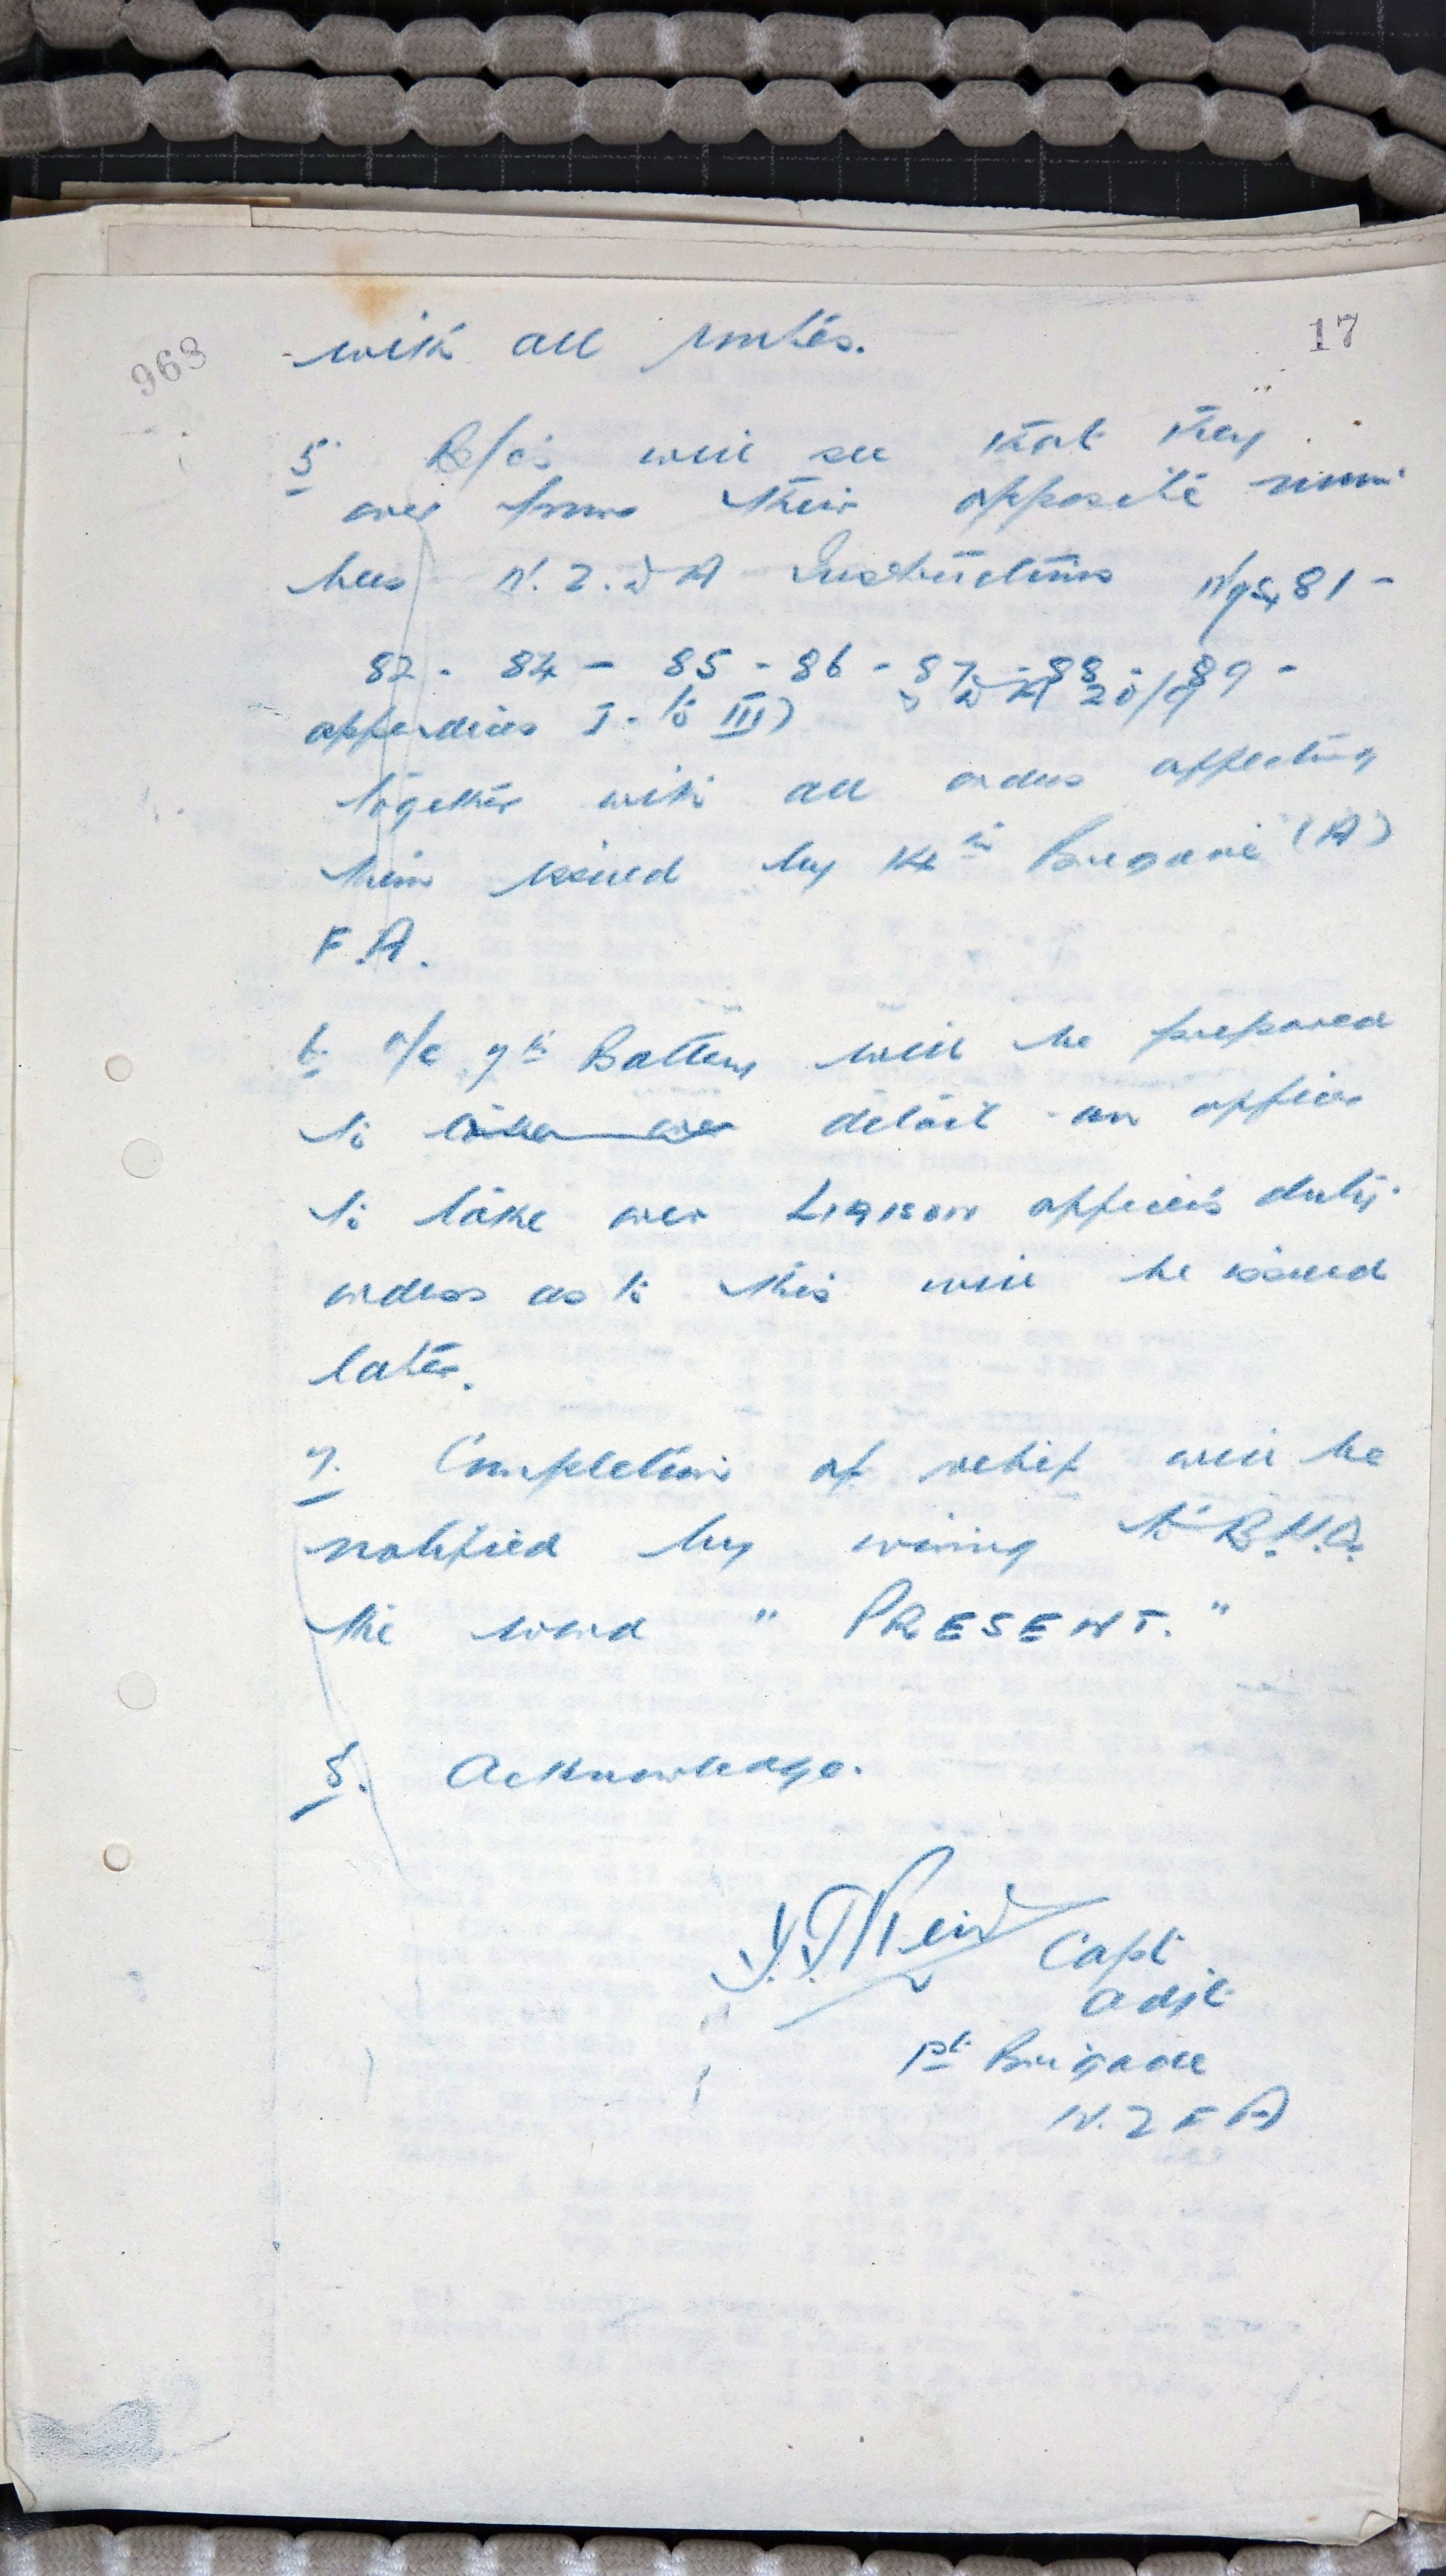 963
17
with all routes.
5 B/Cs will see that they
over from their opposite num-
bers N.Z.D A Instructions Nos 81 -
82 - 84 - 85 - 86 - 87 - 88 - 89 -
appendices I - to III)
together with all orders affecting
them issued by 14th Brigade (A)
F.A.
6. O/C 7th Battery will be prepared
to take over detail an officer
to take over Liaison officers duty.
orders as to this will be issued
later.
7. Completion of relief will be
notified by wiring to B.H.Q.
the word " PRESENT. "
8. Acknowledge.
Reid Capt
Adjt
1st Brigade
N.Z F A